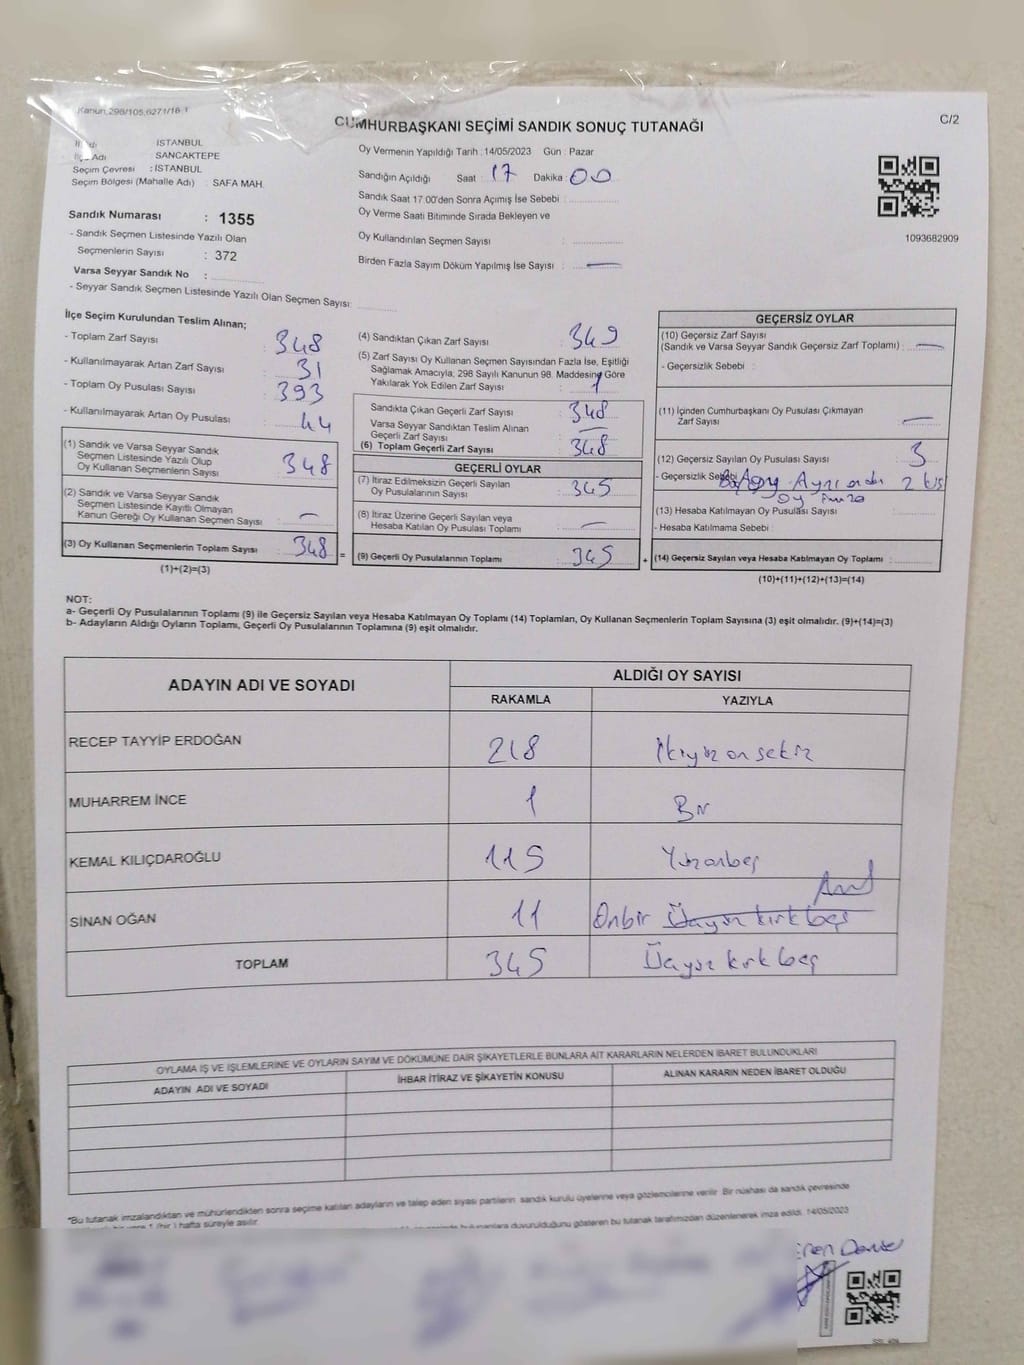 Kanun 298/105,6271/18
CUMHURBAŞKANI SEÇİMİ SANDIK SONUÇ TUTANAĞI
C/2
İl Adı İSTANBUL
İlçe Adı SANCAKTEPE
Seçim Çevresi : İSTANBUL
Seçim Bölgesi (Mahalle Adı) : SAFA MAH.
Sandık Numarası : 1355
- Sandık Seçmen Listesinde Yazılı Olan
Seçmenlerin Sayısı : 372
Varsa Seyyar Sandık No :
- Seyyar Sandık Seçmen Listesinde Yazılı Olan Seçmen Sayısı:
Oy Vermenin Yapıldığı Tarih : 14/05/2023 Gün : Pazar
Sandığın Açıldığı Saat : 17 Dakika : 00
Sandık Saat 17.00'den Sonra Açımış İse Sebebi :
Oy Verme Saati Bitiminde Sırada Bekleyen ve
Oy Kullandırılan Seçmen Sayısı :
Birden Fazla Sayım Döküm Yapılmış İse Sayısı : —
1093682909
İlçe Seçim Kurulundan Teslim Alınan;
- Toplam Zarf Sayısı : 348
- Kullanılmayarak Artan Zarf Sayısı : 31
- Toplam Oy Pusulası Sayısı : 393
- Kullanılmayarak Artan Oy Pusulası : 44
(1) Sandık ve Varsa Seyyar Sandık
Seçmen Listesinde Yazılı Olup
Oy Kullanan Seçmenlerin Sayısı : 348
(2) Sandık ve Varsa Seyyar Sandık
Seçmen Listesinde Kayıtlı Olmayan
Kanun Gereği Oy Kullanan Seçmen Sayısı : —
(3) Oy Kullanan Seçmenlerin Toplam Sayısı : 348 =
(1)+(2)=(3)
(4) Sandıktan Çıkan Zarf Sayısı : 349
(5) Zarf Sayısı Oy Kullanan Seçmen Sayısından Fazla İse, Eşitliği
Sağlamak Amacıyla, 298 Sayılı Kanunun 98. Maddesine Göre
Yakılarak Yok Edilen Zarf Sayısı : 1
Sandıkta Çıkan Geçerli Zarf Sayısı : 348
Varsa Seyyar Sandıktan Teslim Alınan
Geçerli Zarf Sayısı : —
(6) Toplam Geçerli Zarf Sayısı : 348
GEÇERLİ OYLAR
(7) İtiraz Edilmeksizin Geçerli Sayılan
Oy Pusulalarının Sayısı : 345
(8) İtiraz Üzerine Geçerli Sayılan veya
Hesaba Katılan Oy Pusulası Toplamı : —
(9) Geçerli Oy Pusulalarının Toplamı : 345 +
GEÇERSİZ OYLAR
(10) Geçersiz Zarf Sayısı
(Sandık ve Varsa Seyyar Sandık Geçersiz Zarf Toplamı) : —
- Geçersizlik Sebebi :
(11) İçinden Cumhurbaşkanı Oy Pusulası Çıkmayan
Zarf Sayısı : —
(12) Geçersiz Sayılan Oy Pusulası Sayısı : 3
- Geçersizlik Sebebi
(13) Hesaba Katılmayan Oy Pusulası Sayısı :
- Hesaba Katılmama Sebebi :
(14) Geçersiz Sayılan veya Hesaba Katılmayan Oy Toplamı :
(10)+(11)+(12)+(13)=(14)
NOT:
a- Geçerli Oy Pusulalarının Toplamı (9) ile Geçersiz Sayılan veya Hesaba Katılmayan Oy Toplamı (14) Toplamları, Oy Kullanan Seçmenlerin Toplam Sayısına (3) eşit olmalıdır. (9)+(14)=(3)
b- Adayların Aldığı Oyların Toplamı, Geçerli Oy Pusulalarının Toplamına (9) eşit olmalıdır.
ADAYIN ADI VE SOYADI
ALDIĞI OY SAYISI
RAKAMLA YAZIYLA
RECEP TAYYİP ERDOĞAN 218 ikiyüz onsekiz
MUHARREM İNCE 1 Bir
KEMAL KILIÇDAROĞLU 115 Yüzonbeş
SİNAN OĞAN 11 Onbir Üçyüz kırk beş
TOPLAM 345 Üçyüz kırk beş
OYLAMA İŞ VE İŞLEMLERİNE VE OYLARIN SAYIM VE DÖKÜMÜNE DAİR ŞİKAYETLERLE BUNLARA AİT KARARLARIN NELERDEN İBARET BULUNDUKLARI
ADAYIN ADI VE SOYADI İHBAR İTİRAZ VE ŞİKAYETİN KONUSU ALINAN KARARIN NEDEN İBARET OLDUĞU
*Bu tutanak imzalandıktan ve mühürlendikten sonra seçime katılan adayların ve talep eden siyasi partilerin sandık kurulu üyelerine veya gözlemcilerine verilir. Bir nüshası da sandık çevresinde
1 (bir) hafta süreyle asılır.
bulunanlara duyurulduğunu gösteren bu tutanak tarafımızdan düzenlenerek imza edildi. 14/05/2023